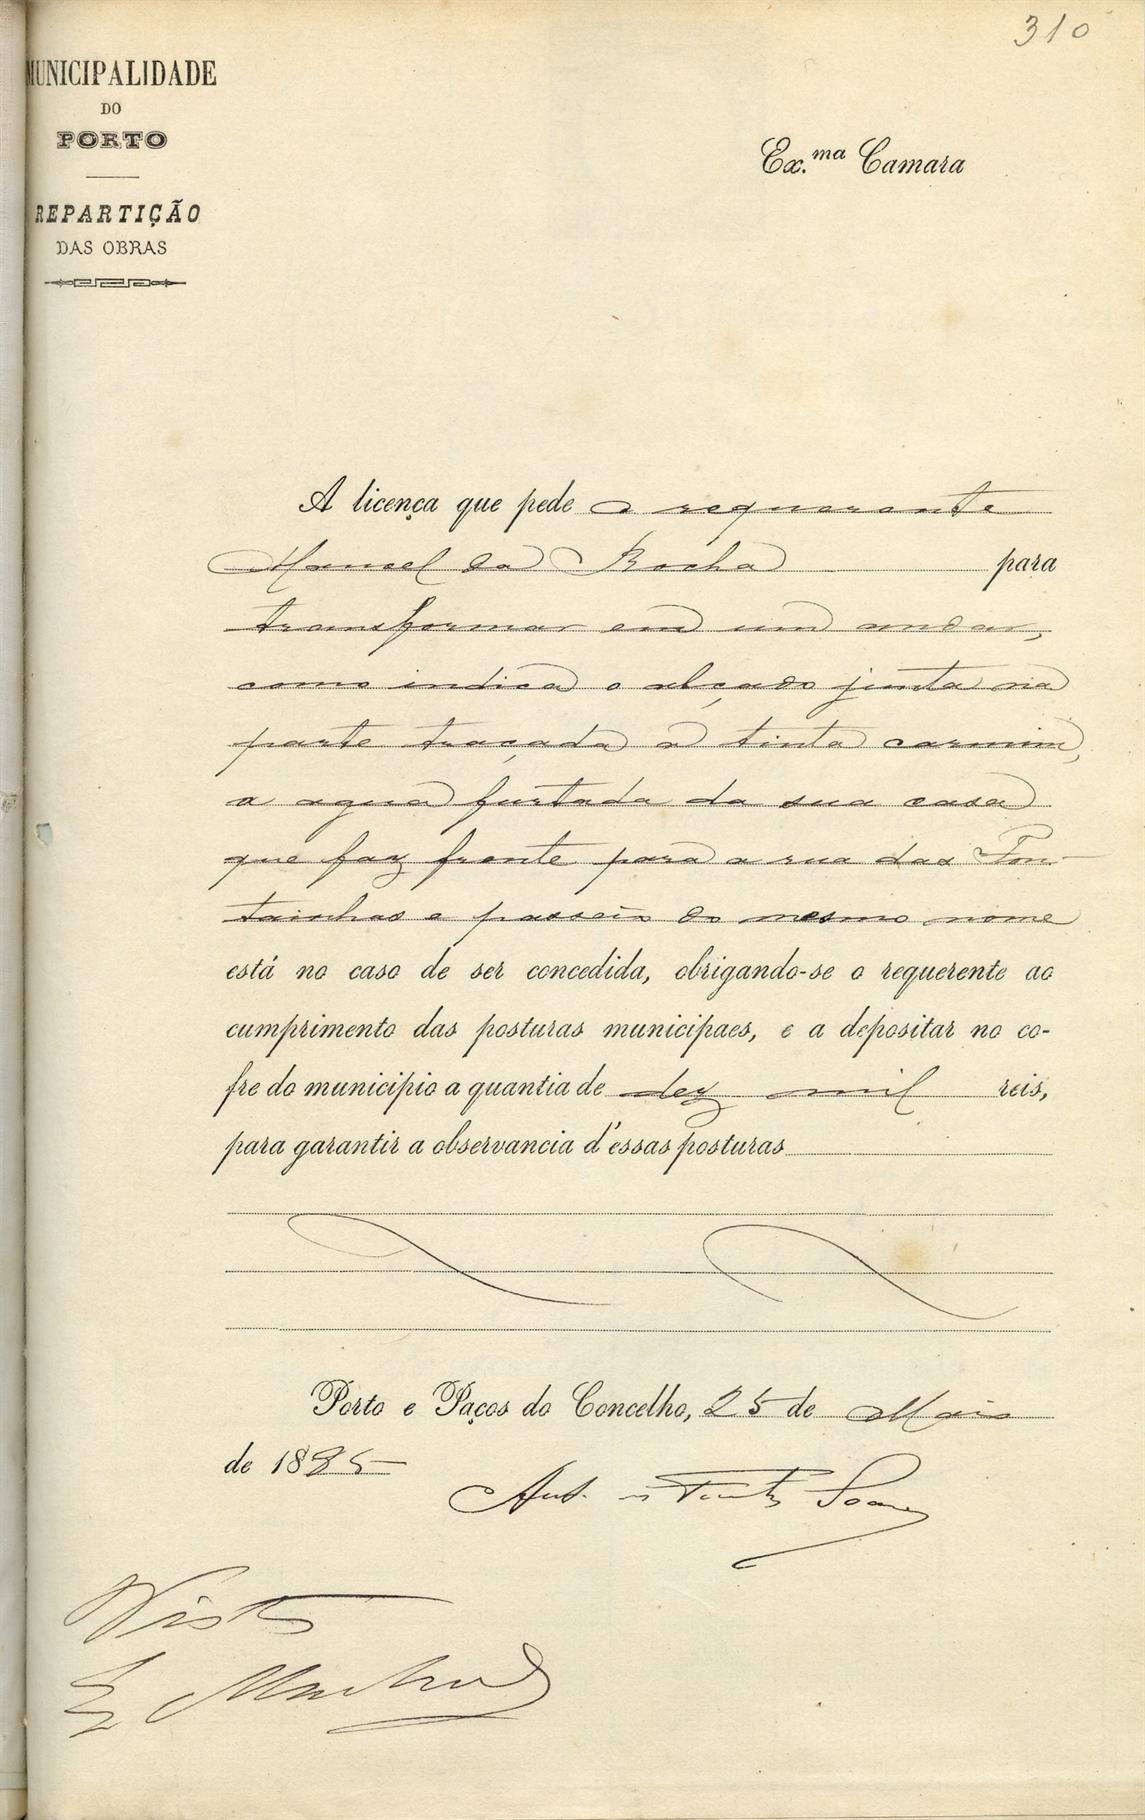 310
MUNICIPALIDADE
DO
PORTO
REPARTIÇÃO
DAS OBRAS
Ex.ma Camara
A licença que pede o requerente
Manoel da Rocha para
transformar em um andar,
como indica o alçado junta na
parte traçada a tinta carmim,
a agua furtada da sua casa
que faz frente para a rua das Fon-
tainhas e passeio do mesmo nome
está no caso de ser concedida, obrigando-se o requerente ao
cumprimento das posturas municipaes, e a depositar no co-
fre do municipio a quantia de dez mil reis,
para garantir a observancia d'essas posturas
Porto e Paços do Concelho, 25 de Maio
de 1885
Soares
Visto
Machado